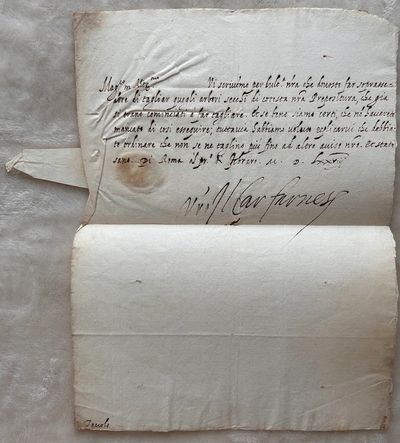 Vi scrivemo per l'ult.ª nra che doveste far soprase=
dere di tagliar quegli arbori secchi di cotesta nra Prepositura, che già
si erano cominciati à far tagliare. Et se bene siamo certi, che nō haverete
mancato di così esseguire; tuttavia habbiamo voluto replicarvi che debbia=
te ordinare che non se ne taglino più fino ad altro aviso nrō. Et state
sano. Di Roma
Il Car farnese